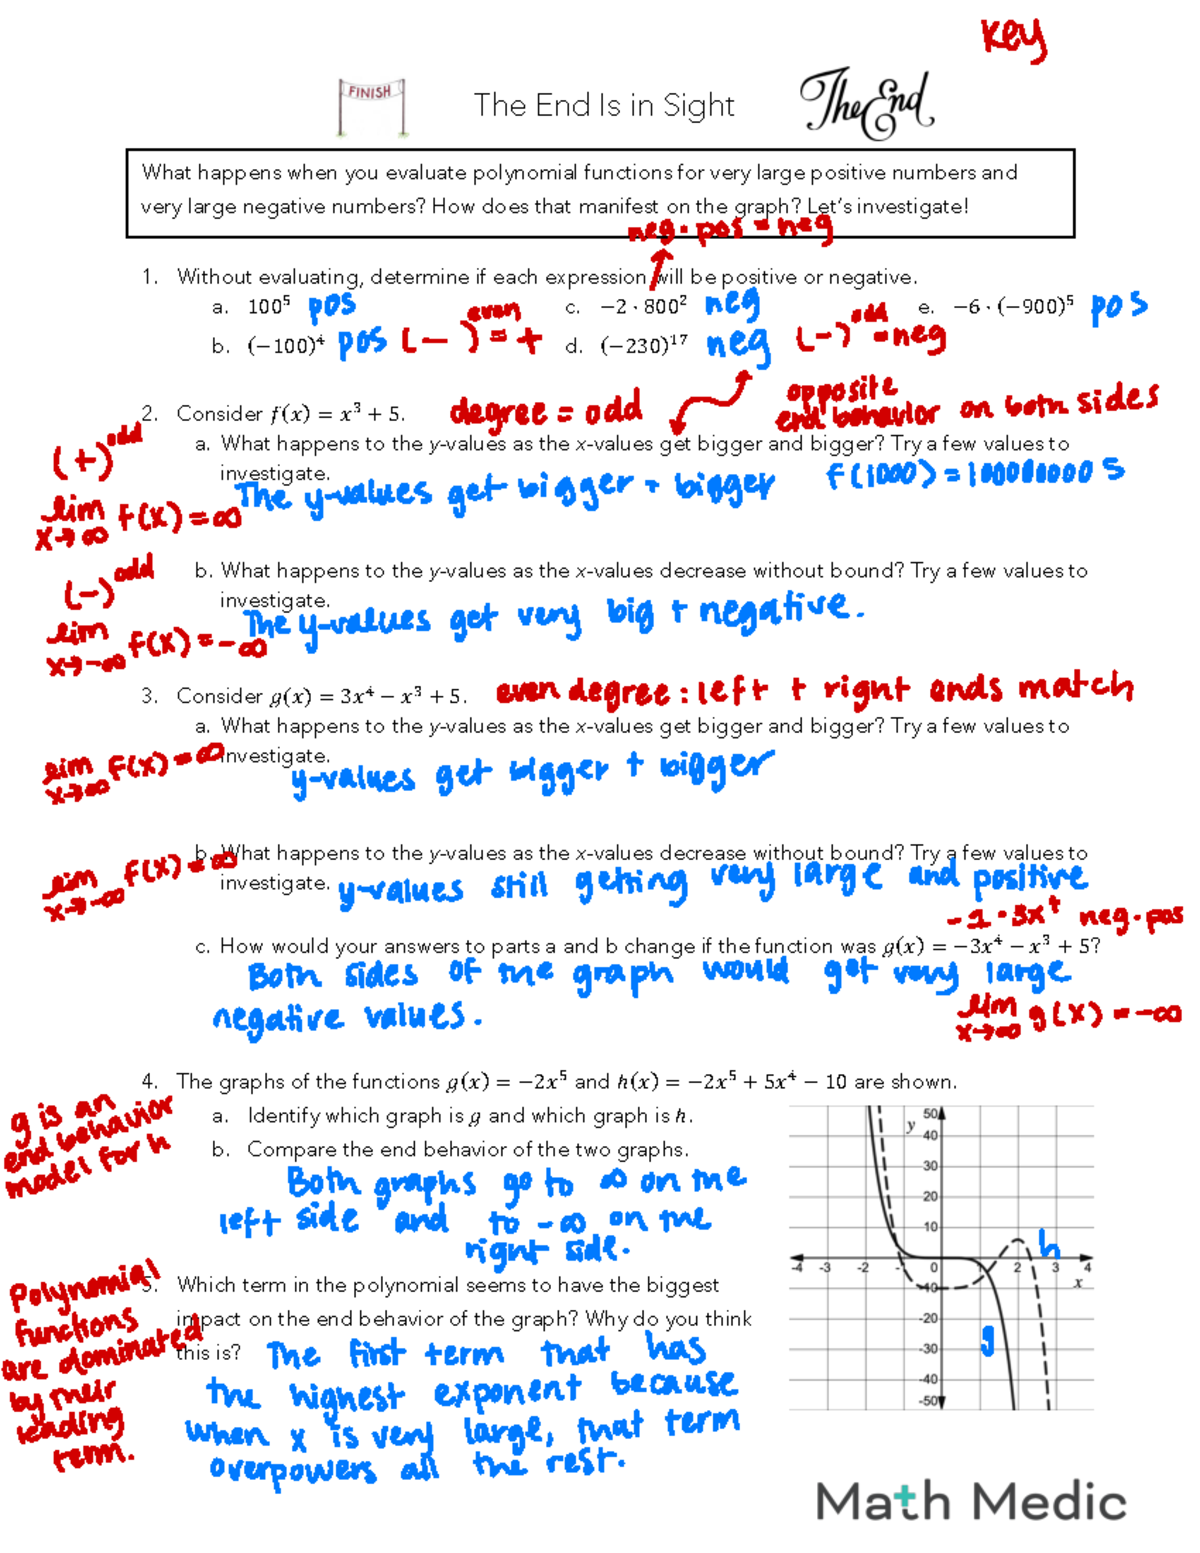 Key
FINISH
The End Is in Sight
The End
What happens when you evaluate polynomial functions for very large positive numbers and
very large negative numbers? How does that manifest on the graph? Let's investigate!
neg · pos = neg
1. Without evaluating, determine if each expression will be positive or negative.
a. 100⁵ pos
c. −2 · 800² neg
e. −6 · (−900)⁵ pos
b. (−100)⁴ pos (−)^even = +
d. (−230)¹⁷ neg (−)^odd = neg
2. Consider f(x) = x³ + 5. degree = odd
opposite
end behavior on both sides
a. What happens to the y-values as the x-values get bigger and bigger? Try a few values to
investigate.
(+)^odd
lim x→∞ f(x) = ∞
The y-values get bigger + bigger f(1000) = 1000000005
b. What happens to the y-values as the x-values decrease without bound? Try a few values to
investigate.
(−)^odd
lim x→−∞ f(x) = −∞
The y-values get very big + negative.
3. Consider g(x) = 3x⁴ − x³ + 5. even degree: left + right ends match
a. What happens to the y-values as the x-values get bigger and bigger? Try a few values to
investigate.
lim x→∞ f(x) = ∞
y-values get bigger + bigger
b. What happens to the y-values as the x-values decrease without bound? Try a few values to
investigate.
lim x→−∞ f(x) = ∞
y-values still getting very large and positive
−1 · 3x⁴ neg · pos
c. How would your answers to parts a and b change if the function was g(x) = −3x⁴ − x³ + 5?
Both sides of the graph would get very large
negative values.
lim x→∞ g(x) = −∞
4. The graphs of the functions g(x) = −2x⁵ and h(x) = −2x⁵ + 5x⁴ − 10 are shown.
a. Identify which graph is g and which graph is h.
b. Compare the end behavior of the two graphs.
g is an
end behavior
model for h
Both graphs go to ∞ on the
left side and to −∞ on the
right side.
y
50
40
30
20
10
-4 -3 -2 -1 0 2 3 4
x
-10
-20
-30
-40
-50
h
g
5. Which term in the polynomial seems to have the biggest
impact on the end behavior of the graph? Why do you think
this is?
Polynomial
functions
are dominated
by their
leading
term.
The first term that has
the highest exponent because
when x is very large, that term
overpowers all the rest.
Math Medic